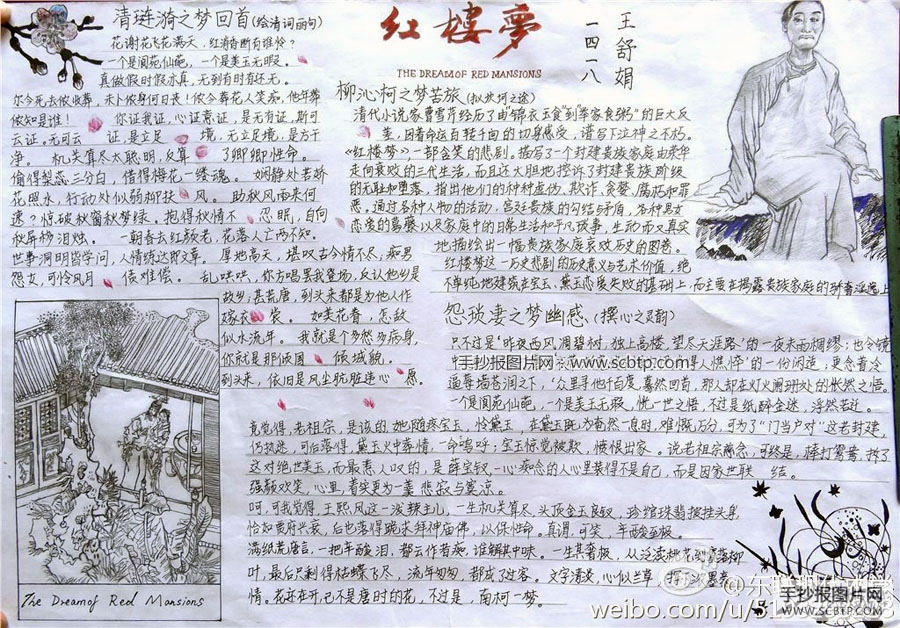 清琏漪之梦回首(给清词丽句)
花谢花飞花满天，红消香断有谁怜？
一个是阆苑仙葩，一个是美玉无瑕。
真做假时假亦真，无到有时有还无。
尔今死去侬收葬，未卜侬身何日丧！侬今葬花人笑痴，他年葬
侬知是谁！ 你证我证，心证意证，是无有证，斯可
云证。无可云 证，是立足 境，无立足境，是方干
净。 机关算尽太聪明，反算 了卿卿性命。
偷得梨蕊三分白，借得梅花一缕魂。 娴静处若娇
花照水，行动处似弱柳扶 风。 助秋风雨来何
速？惊破秋窗秋梦绿。抱得秋情不 忍眠，自向
秋屏移泪烛。 一朝春去红颜老，花落人亡两不知。
世事洞明皆学问，人情练达即文章。 厚地高天，堪叹古今情不尽，痴男
怨女，可怜风月 债难偿。 乱哄哄，你方唱罢我登场，反认他乡是
故乡；甚荒唐，到头来都是为他人作
嫁衣 裳。 如美花眷，怎敌
似水流年。 我就是个多愁多病身，
你就是那倾国 倾城貌。
到头来，依旧是风尘肮脏违心 愿。
The Dream of Red Mansions
红楼夢
THE DREAM OF RED MANSIONS
王舒娟
一四一八
柳沁柯之梦苦旅(拟坎坷之途)
清代小说家曹雪芹经历了由"锦衣玉食"到"举家食粥"的巨大反
差，困者命运百转千回的切身感受，谱写下泣神之不朽。
《红楼梦》，一部含笑的悲剧。描写了一个封建贵族家庭由荣华
走向衰败的三代生活，而且还大胆地控诉了封建贵族阶级
的无耻和堕落，指出他们的种种虚伪、欺诈、贪婪、腐朽和罪
恶。通过各种人物的活动，宫廷贵族的勾结与矛盾，各种男女
恋爱的葛藤以及家庭中的日常生活和平凡故事，生动而又真实
地描绘出一幅贵族家庭衰败历史的图卷。
红楼梦这一历史悲剧的历史意义与艺术价值，绝
不单纯地建筑在宝玉、黛玉恋爱失败的基础上，而主要在揭露贵族家庭的骄奢淫逸上
怨琐妻之梦幽感(撰心之灵韵)
只不过是'昨夜西风凋碧树，独上高楼，望尽天涯路'的一夜未雨绸缪；也令镜
人憔悴'的一份闲造，更念着冷
逼辱墙苍润之下，'众里寻他千百度，蓦然回首，那人却在灯火阑珊处的怅然之悟。
一个是阆苑仙葩，一个是美玉无瑕，恍一世之悟，不过是纸醉金迷，浮然若近。
手抄报图片网:www.scbtp.com
竟觉得，老祖宗，是该的，她随疼宝玉，怜黛玉， 在黛玉那为着然一息时，难慨万分，可为了"门当户对"这老封建，
仍执迷，可后落得，黛玉火中葬情，一命呜呼；宝玉惊觉被欺，愤恨出家。 说老祖宗慈念，可终是，棒打鸳鸯，拆了
这对绝世美玉，而最惹人叹的，是薛宝钗，一心痴念的人心里装得不是自己，而是因家世联 结。
强颜欢笑，心里，着实更为一羞悲寂与寞凉。
呵，可我觉得，王熙凤这一泼辣主儿，一生机关算尽，头顶金玉良钗，珍馆珠翡披挂头身，
恰知贾府兴衰，后也落得跪求拜神庙佛，以保性命。真谓，可笑，辛酸至极。
满纸荒唐言，一把辛酸泪，都云作者痴，谁解其中味。 一生其著极，从泛滚桃花到落落柳
叶，最后只剩得枯蝶飞尽，流年匆匆，都成了过客。 文字清淡，心似兰草，
情。花亦在开，已不是唐时的花，不过是，南柯一梦。
weibo.com/u/5
手抄报图片网
WWW.SCBTP.COM